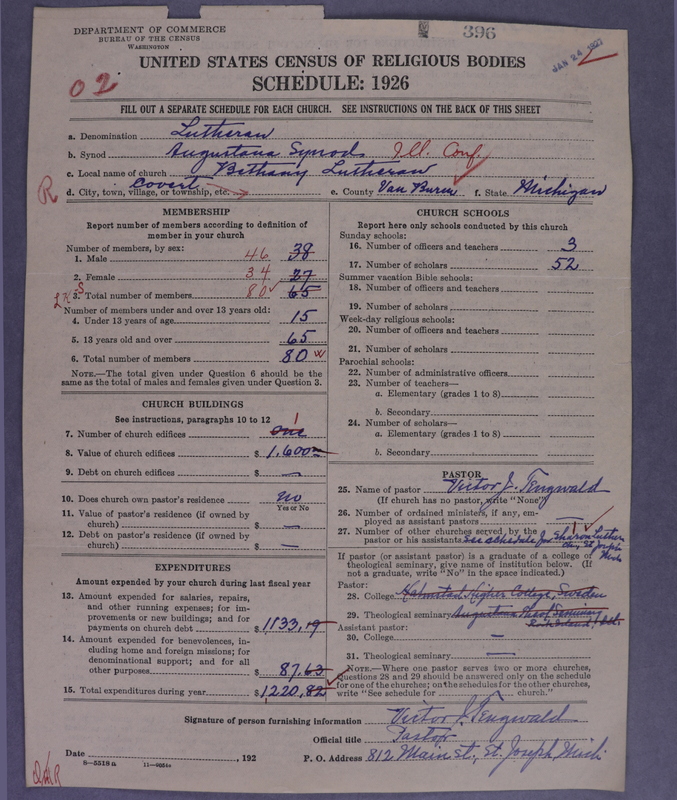 DEPARTMENT OF COMMERCE
BUREAU OF THE CENSUS
WASHINGTON
396
JAN 24 1927
02
UNITED STATES CENSUS OF RELIGIOUS BODIES
SCHEDULE: 1926
FILL OUT A SEPARATE SCHEDULE FOR EACH CHURCH. SEE INSTRUCTIONS ON THE BACK OF THIS SHEET
a. Denomination Lutheran
b. Synod Augustana Synods Ill. Conf.
c. Local name of church Bethany Lutheran
R d. City, town, village, or township, etc. Covert e. County Van Buren f. State Michigan
MEMBERSHIP
Report number of members according to definition of
member in your church
Number of members, by sex:
1. Male 46 38
2. Female 34 27
3. Total number of members 80 65
Number of members under and over 13 years old:
4. Under 13 years of age 15
5. 13 years old and over 65
6. Total number of members 80
NOTE.—The total given under Question 6 should be the
same as the total of males and females given under Question 3.
CHURCH BUILDINGS
See instructions, paragraphs 10 to 12
7. Number of church edifices one 1
8. Value of church edifices $ 1,600
9. Debt on church edifices $ —
10. Does church own pastor's residence no
Yes or No
11. Value of pastor's residence (if owned by
church) $ —
12. Debt on pastor's residence (if owned by
church) $ —
EXPENDITURES
Amount expended by your church during last fiscal year
13. Amount expended for salaries, repairs,
and other running expenses; for im-
provements or new buildings; and for
payments on church debt $ 1133.19
14. Amount expended for benevolences, in-
cluding home and foreign missions; for
denominational support; and for all
other purposes $ 87.63
15. Total expenditures during year $ 1220.82
CHURCH SCHOOLS
Report here only schools conducted by this church
Sunday schools:
16. Number of officers and teachers 3
17. Number of scholars 52
Summer vacation Bible schools:
18. Number of officers and teachers
19. Number of scholars
Week-day religious schools:
20. Number of officers and teachers
21. Number of scholars
Parochial schools:
22. Number of administrative officers
23. Number of teachers—
a. Elementary (grades 1 to 8)
b. Secondary
24. Number of scholars—
a. Elementary (grades 1 to 8)
b. Secondary
PASTOR
25. Name of pastor Victor J. Tengwald
(If church has no pastor, write "None")
26. Number of ordained ministers, if any, em-
ployed as assistant pastors —
27. Number of other churches served by the 1
pastor or his assistants See schedule for Sharon Luther
Ch, St. Joseph
Mich
If pastor (or assistant pastor) is a graduate of a college or
theological seminary, give name of institution below. (If
not a graduate, write "No" in the space indicated.)
Pastor:
28. College Halmstad Higher College, Sweden
29. Theological seminary Augustana Theol Seminary
Rock Island, Ill.
Assistant pastor:
30. College —
31. Theological seminary —
NOTE.—Where one pastor serves two or more churches,
questions 28 and 29 should be answered only on the schedule
for one of the churches; on the schedules for the other churches,
write "See schedule for church."
Signature of person furnishing information Victor J. Tengwald
Official title Pastor
Date , 192 P. O. Address 812 Main St., St. Joseph, Mich
8—5518 a 11—9654